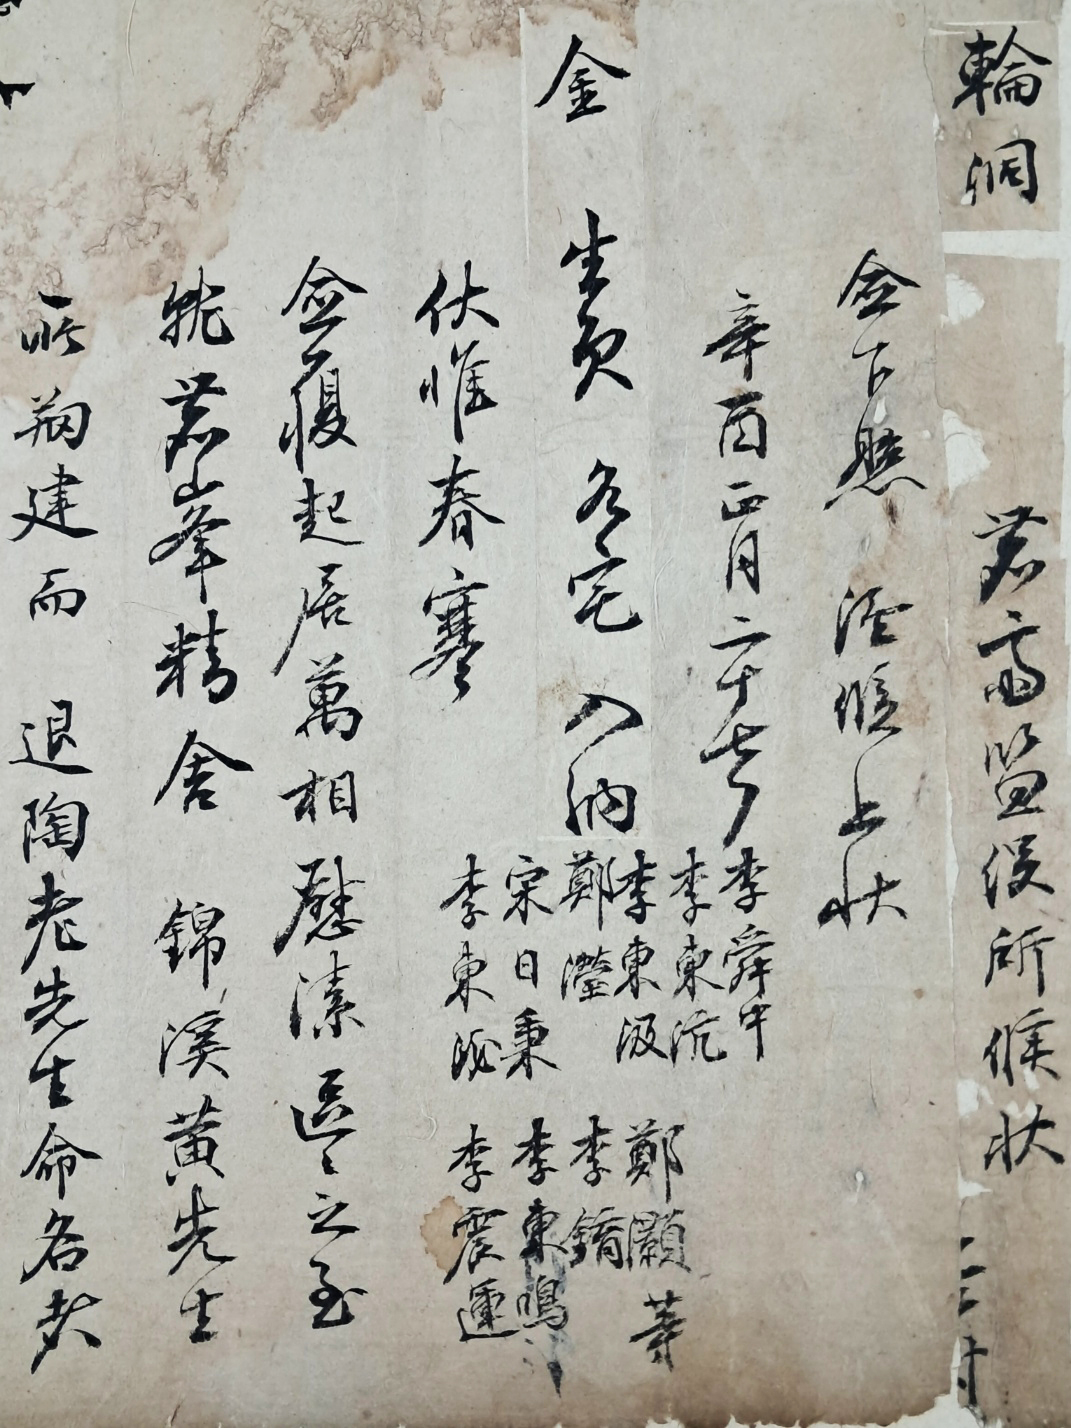 輪洞
鹿齋監役所候狀
僉下照 候上狀
辛酉正月二十七日
李舜中
李東沆
李東汲 鄭顥 等
金 生員 各宅 入納
鄭瀅 李
宋日秉 李東鳴
李東 李震運
伏惟春寒
僉履起居萬相慰溸區〻之至
就鹿峯精舍 錦溪黃先生
所刱建而 退陶老先生命名者